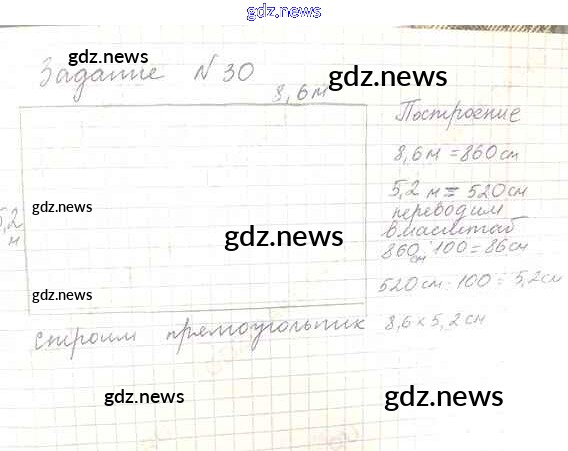 gdz.news
gdz.news
Задание N 30
gdz.news
8,6м
Построение
8,6м = 860см
5,2 м = 520см
переводим
в масштаб
860см : 100 = 86см
520см : 100 = 5,2см
8,6 × 5,2 см
5,2
м
gdz.news
gdz.news
gdz.news
строим прямоугольник
gdz.news
gdz.news